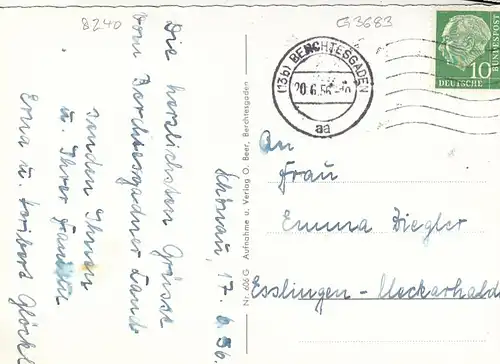 8240
G3683
Schönau, 17. 6. 56.
Die herzlichsten Grüsse
vom Berchtesgadner Land
senden Ihnen
u. Ihrer Familie
Erna u. Heribert Glöckl
Nr. 606 G Aufnahme u. Verlag O. Beer, Berchtesgaden
(13b) BERCHTESGADEN
20.6.56
aa
10
DEUTSCHE
BUNDESPOST
An
Frau
Emma Ziegler
Esslingen-Neckarhalde